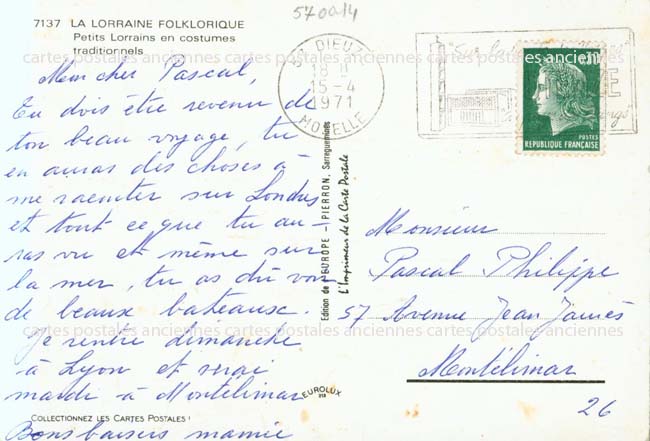 570014
7137 LA LORRAINE FOLKLORIQUE
Petits Lorrains en costumes
traditionnels
Mon cher Pascal,
Tu dois être revenu de
ton beau voyage, tu
en auras des choses à
me raconter sur Londres
et tout ce que tu au-
ras vu et même sur
la mer, tu as dû voir
de beaux bateaux.
Je rentre dimanche
à Lyon et serai
mardi à Montélimar
Bons baisers mamie
COLLECTIONNEZ LES CARTES POSTALES !
57 DIEUZE
15-4
1971
MOSELLE
"Sur la
0.30
POSTES
REPUBLIQUE FRANÇAISE
Edition de l'EUROPE - PIERRON, Sarreguemines
L'Imprimeur de la Carte Postale
EUROLUX
Monsieur
Pascal Philippe
57 Avenue Jean Jaurès
Montélimar
26
cartes postales anciennes cartes postales anciennes cartes postales anciennes
cartes postales anciennes cartes postales anciennes cartes postales anciennes